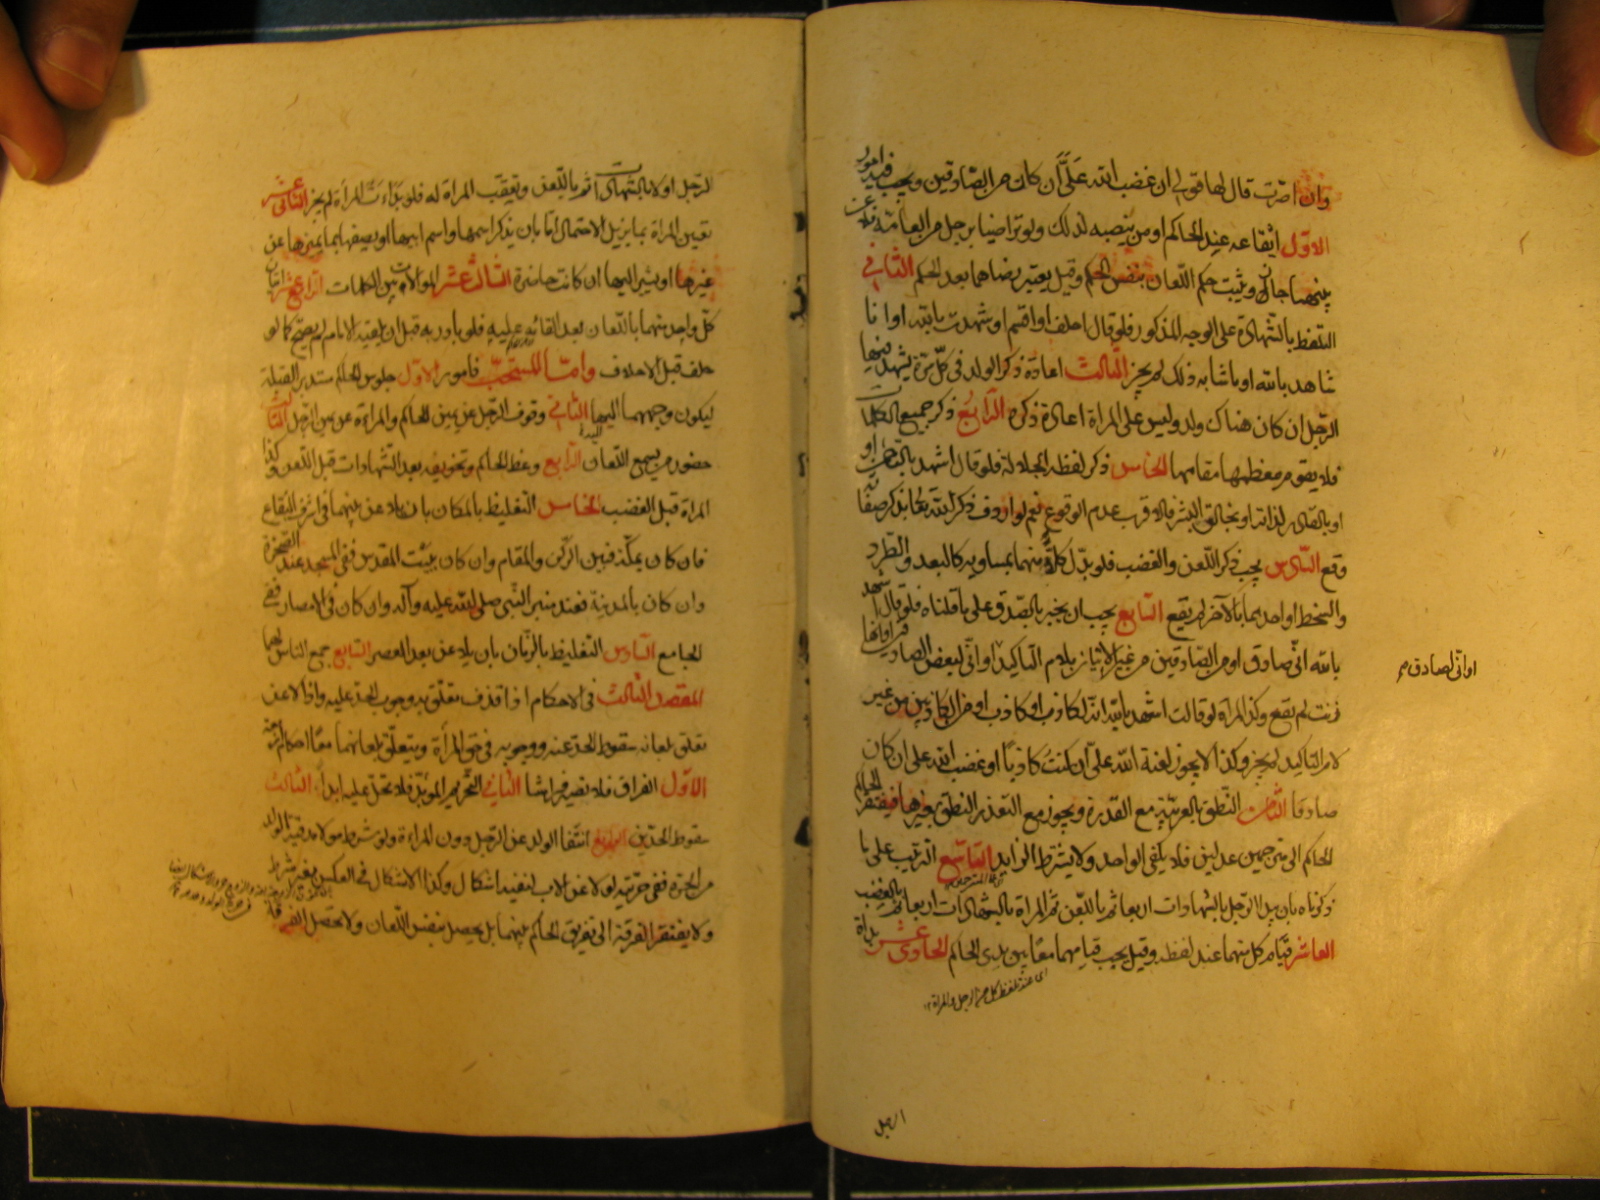 وان اصرت قال لها قولي ان غضب الله علي ان كان من الصادقين ويجب فيه امور
الاول ايقاعه عند الحاكم او من ينصبه لذلك ولو تراضيا برجل من العامة فلاعن
بينهما جاز ويثبت حكم اللعان بنفس الحكم وقيل يعتبر رضاهما بعد الحكم الثاني
التلفظ بالشهادة على الوجه المذكور فلو قال احلف او اقسم او شهدت بالله او انا
شاهد بالله او ما شابه ذلك لم يجز الثالث اعادة ذكر الولد في كل مرة يشهد فيها
الرجل ان كان هناك ولد وليس على المراة اعادة ذكره الرابع ذكر جميع الكلمات
فلا يقوم معظمها مقامها الخامس ذكر لفظة الجلالة فلو قال اشهد بالرحمن او
او بالقادر لذاته او بخالق البشر فالاقرب عدم الوقوع نعم لو اردف ذكر الله تعالى بذكر صفاته
وقع السادس يجب ذكر اللعن والغضب فلو بدل كلا منهما بمساويه كالبعد والطرد
والسخط او احدهما بالاخر لم يقع السابع يجب ان يخبر بالصدق على ما قلناه فلو قال اشهد
بالله اني صادق او من الصادقين من غير الاتيان بلام التاكيد او اني لبعض الصادقين او انها
زنت لم يقع وكذا المراة لو قالت اشهد بالله انه لكاذب او كاذب او من الكاذبين من غير
لام التاكيد لم يجز وكذا لا يجوز لعنة الله علي ان كنت كاذبا او غضب الله علي ان كان
صادقا الثامن النطق بالعربية مع القدرة ويجوز مع التعذر النطق بغيرها فيفتقر الحاكم
الحاكم الى مترجمين عدلين فلا يكفي الواحد ولا يشترط الزايد التاسع الترتيب على ما
ذكرناه بان يبدا الرجل بالشهادات اربعا ثم باللعن ثم المراة بالشهادات اربعا ثم بالغضب
العاشر قيام كل منهما عند لفظه وقيل يجب قيامهما معا بين يدي الحاكم الحادي عشر بداة
اي عند تلفظ كل من الرجل والمراة
او اني لصادق
الرجل
الرجل اولا بالشهادات ثم باللعن وتعقب المراة له فلو بدات المراة لم يجز الثاني عشر
تعيين المراة بما يزيل الاحتمال اما بان يذكر اسمها واسم ابيها او يصفها بما يميزها عن
غيرها او يشير اليها ان كانت حاضرة الثالث عشر الموالاة بين الكلمات الرابع عشر اتيان
كل واحد منهما باللعان بعد القائه عليه فلو بادر به قبل ان يلقيه الامام لم يصح كما لو
حلف قبل الاحلاف واما المستحب فامور الاول جلوس الحاكم مستدبر القبلة
ليكون وجههما اليها الثاني وقوف الرجل عن يمين الحاكم والمراة عن يمين الرجل الثالث
حضور من يسمع اللعان الرابع وعظ الحاكم وتخويفه بعد الشهادات قبل اللعن وكذا
المراة قبل الغضب الخامس التغليظ بالمكان بان يلاعن بينهما في اشرف البقاع
فان كان بمكة فبين الركن والمقام وان كان ببيت المقدس ففي المسجد عند الصخرة
وان كان بالمدينة فعند منبر النبي صلى الله عليه وآله وان كان في الامصار ففي
الجامع السادس التغليظ بالزمان بان يلاعن بعد العصر السابع جمع الناس لهما
المقصد الثالث في الاحكام اذا قذف تعلق به وجوب الحد عليه واذا لاعن
تعلق بلعانه سقوط الحد عنه ووجوبه في حق المرأة ويتعلق بلعانهما معا احكام اربعة
الاول الفراق فلا يصير فراشا الثاني التحريم المؤبد فلا تحل عليه ابدا الثالث
سقوط الحدين الرابع انتفا الولد عن الرجل دون المراة ولو شرط مولاه رقية الولد
من الحرة ففي حريته لو لاعن الاب لنفيه اشكال وكذا الاشكال في العكس بغير شرط
ولا يفتقر الفرقة الى تفريق الحاكم بينهما بل يحصل بنفس اللعان ولا تحصل الفرقة